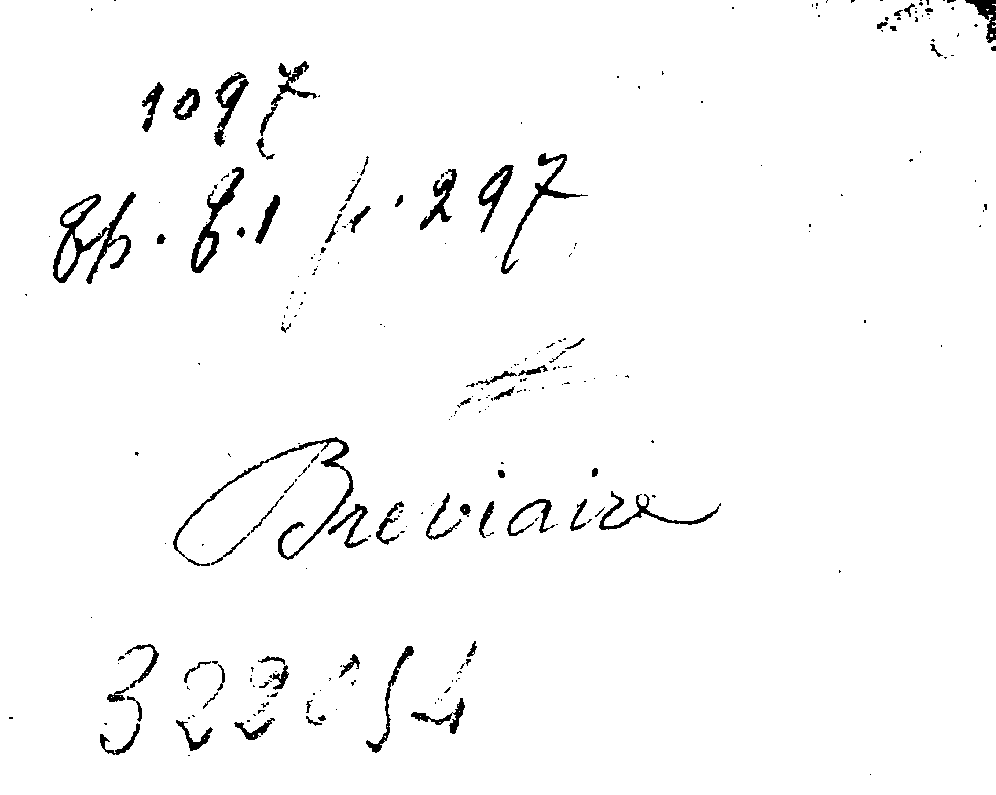 1097
Th. E.1 p. 297
Breviaire
322054